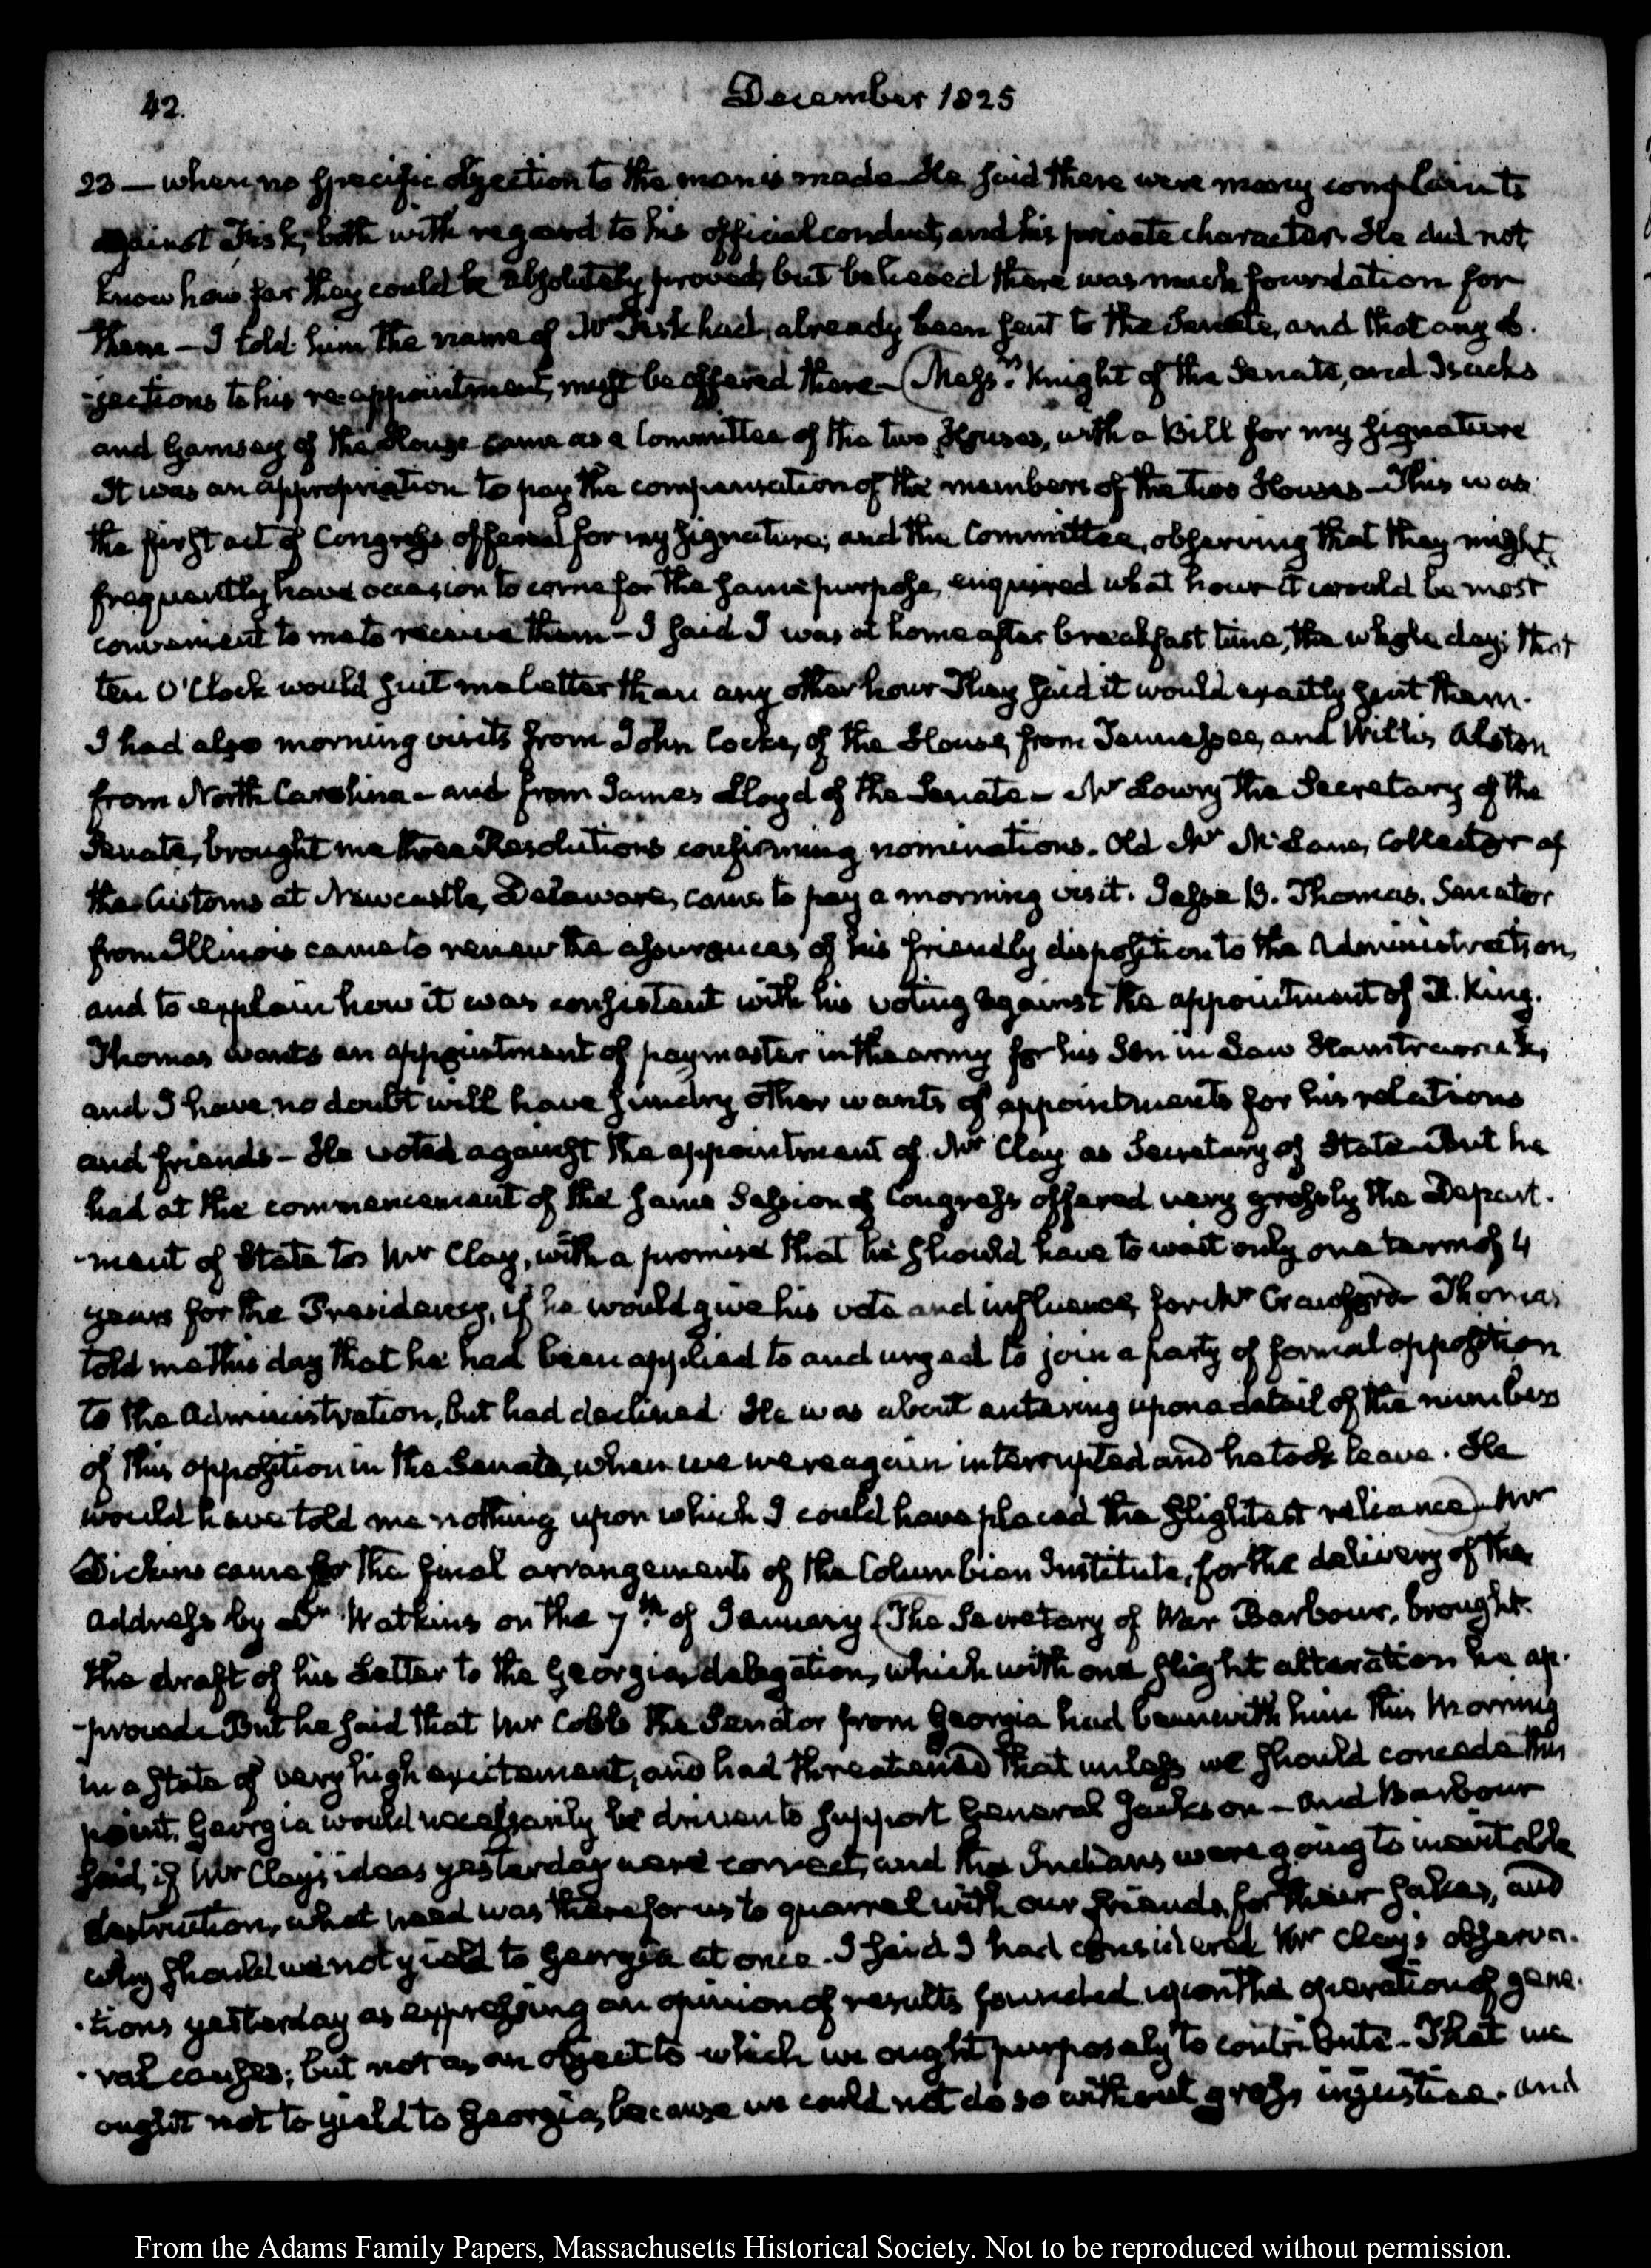 42.
December 1825
23 — when no specific objection to the man is made. He said there were many complaints
against Fisk, both with regard to his official conduct, and his private character. He did not
know how far they could be absolutely proved, but believed there was much foundation for
them — I told him the name of Mr Fisk had already been sent to the Senate, and that any ob-
-jections to his re-appointment, must be offered there — (Messrs. Knight of the Senate, and Isacks
and Garnsey of the House came as a Committee of the two Houses, with a Bill for my signature
It was an appropriation to pay the compensation of the members of the two Houses — This was
the first act of Congress offered for my signature; and the Committee, observing that they might
frequently have occasion to come for the same purpose, enquired what hour it would be most
convenient to me to receive them — I said I was at home after breakfast time, the whole day; that
ten O'Clock would suit me better than any other hour They said it would exactly suit them.
I had also morning visits from John Cocke, of the House, from Tennessee, and Willis Alston
from North Carolina — and from James Lloyd of the Senate — Mr Lowry the Secretary of the
Senate, brought me three Resolutions confirming nominations. Old Mr McLane, Collector of
the Customs at Newcastle, Delaware, came to pay a morning visit. Jesse B. Thomas, Senator
from Illinois came to renew the assurances of his friendly disposition to the Administration,
and to explain how it was consistent with his voting against the appointment of R. King.
Thomas wants an appointment of paymaster in the army for his Son in Law Hamtramck,
and I have no doubt will have sundry other wants of appointments for his relations
and friends — He voted against the appointment of Mr Clay as Secretary of State — But he
had at the commencement of the same Session of Congress offered very grossly the Depart-
-ment of State to Mr Clay, with a promise that he should have to wait only one term of 4
years for the Presidency, if he would give his vote and influence, for Mr Crawford — Thomas
told me this day that he had been applied to and urged to join a party of formal opposition
to the Administration, but had declined. He was about entering upon a detail of the numbers
of this opposition in the Senate, when we were again interrupted and he took leave. He
would have told me nothing upon which I could have placed the slightest reliance) — Mr
Dickins came for the final arrangements of the Columbian Institute, for the delivery of the
address by Dr Watkins on the 7th of January (The Secretary of War Barbour, brought
the draft of his Letter to the Georgia delegation, which with one slight alteration he ap-
-proved — But he said that Mr Cobb the Senator from Georgia had been with him this Morning
in a state of very high excitement, and had threatened that unless we should concede this
point, Georgia would necessarily be driven to support General Jackson — and Barbour
said, if Mr Clay's ideas yesterday were correct, and the Indians were going to inevitable
destruction, what need was there for us to quarrel with our friends for their sakes, and
why should we not yield to Georgia at once. I said I had considered Mr Clay's observa-
-tions yesterday as expressing an opinion of results founded upon the operation of gene-
-ral causes; but not as an object to which we ought purposely to contribute — That we
ought not to yield to Georgia, because we could not do so without gross injustice. and
From the Adams Family Papers, Massachusetts Historical Society. Not to be reproduced without permission.